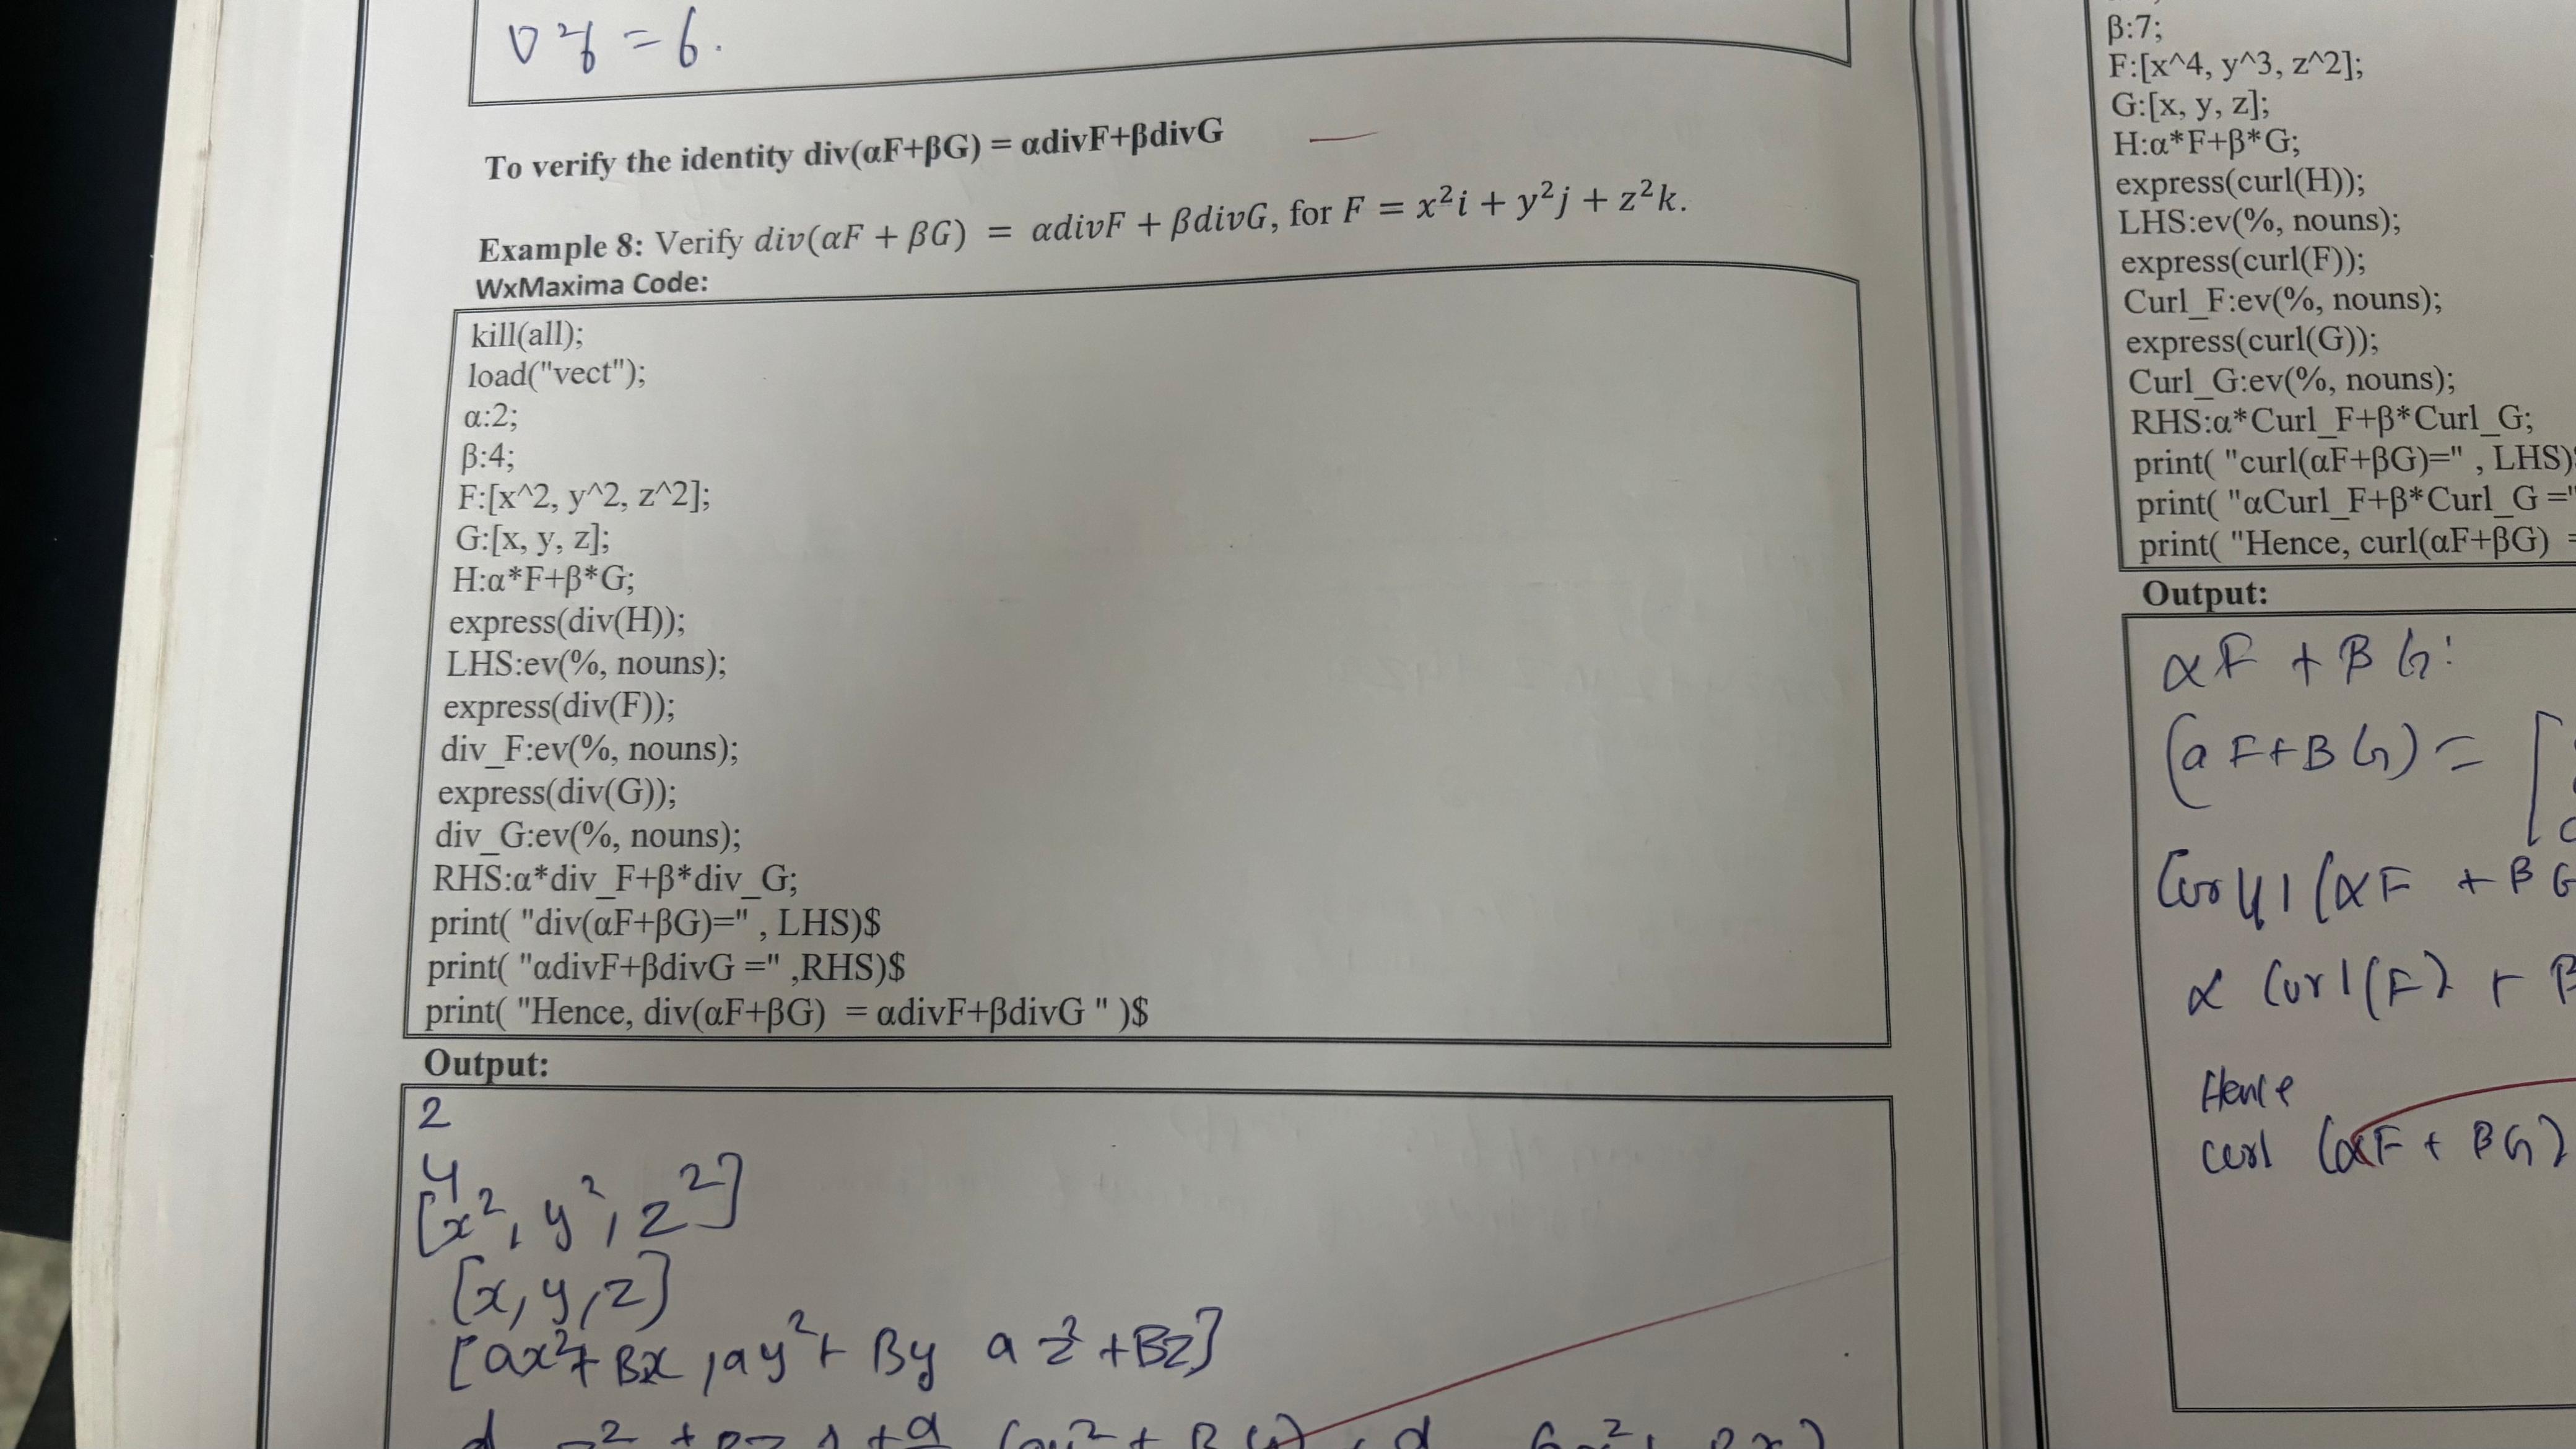 ∇²f = 6.
To verify the identity div(αF+βG) = αdivF+βdivG
Example 8: Verify div(αF + βG) = αdivF + βdivG, for F = x²i + y²j + z²k.
WxMaxima Code:
kill(all);
load("vect");
α:2;
β:4;
F:[x^2, y^2, z^2];
G:[x, y, z];
H:α*F+β*G;
express(div(H));
LHS:ev(%, nouns);
express(div(F));
div_F:ev(%, nouns);
express(div(G));
div_G:ev(%, nouns);
RHS:α*div_F+β*div_G;
print( "div(αF+βG)=" , LHS)$
print( "αdivF+βdivG =" ,RHS)$
print( "Hence, div(αF+βG) = αdivF+βdivG " )$
Output:
2
4
[x², y², z²]
[x, y, z]
[ax²+Bx , ay²+ By az²+Bz]
β:7;
F:[x^4, y^3, z^2];
G:[x, y, z];
H:α*F+β*G;
express(curl(H));
LHS:ev(%, nouns);
express(curl(F));
Curl_F:ev(%, nouns);
express(curl(G));
Curl_G:ev(%, nouns);
RHS:α*Curl_F+β*Curl_G;
print( "curl(αF+βG)=" , LHS)
print( "αCurl_F+β*Curl_G ="
print( "Hence, curl(αF+βG) =
Output:
αF + βG:
(aF+BG) = [
Curl (αF + βG
α Curl(F) + β
Hence
curl (αF + βG)